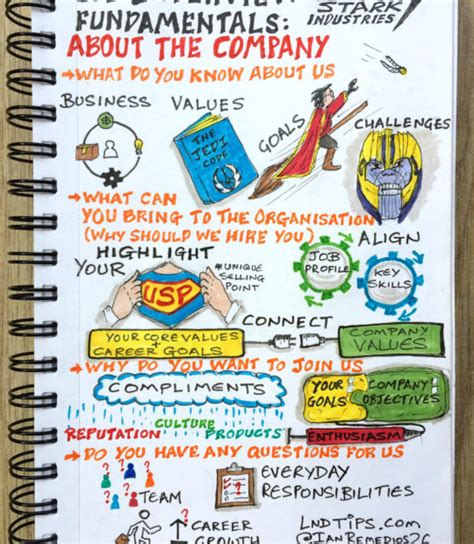 FUNDAMENTALS:
STARK
INDUSTRIES
ABOUT THE COMPANY
→WHAT DO YOU KNOW ABOUT US
BUSINESS
VALUES
THE
JEDI
CODE
GOALS
CHALLENGES
→WHAT CAN
YOU BRING TO THE ORGANISATION
(WHY SHOULD WE HIRE YOU)
HIGHLIGHT
YOUR
USP
#UNIQUE
SELLING
POINT
ALIGN
JOB
PROFILE
KEY
SKILLS
CONNECT
YOUR CORE VALUES
+
CAREER GOALS
COMPANY
VALUES
→WHY DO YOU WANT TO JOIN US
COMPLIMENTS
YOUR
GOALS
COMPANY
OBJECTIVES
REPUTATION
CULTURE
PRODUCTS
ENTHUSIASM
→DO YOU HAVE ANY QUESTIONS FOR US
TEAM
EVERYDAY
RESPONSIBILITIES
CAREER
GROWTH
LNDTIPS.COM
@IANREMEDIOS26